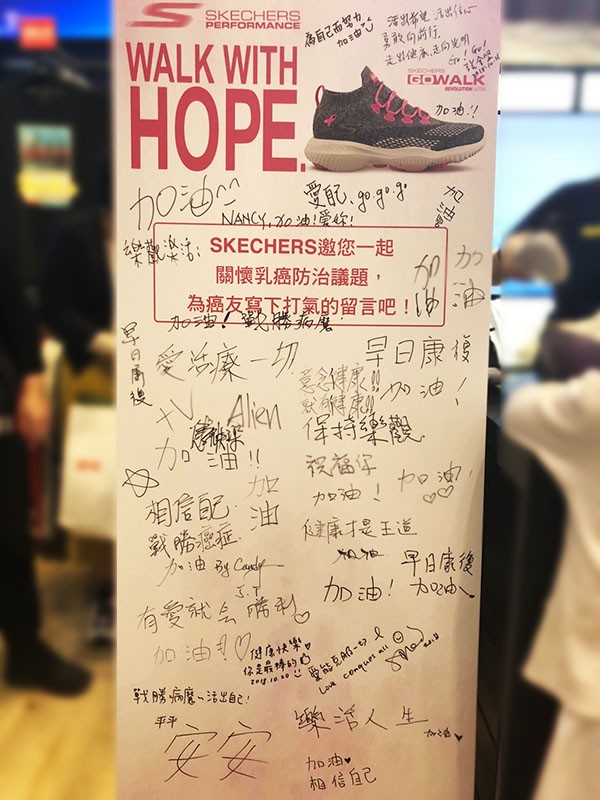 SKECHERS
PERFORMANCE
為自己而努力
加油
活出希望 活出信心
勇敢向前行
走出健康、走向光明
Go! Go!
WALK WITH
HOPE.
SKECHERS
GOWALK
REVOLUTION ULTRA
加油!!
加油^^
愛配、go.go.go
加油
NANCY,加油!愛妳!
樂觀樂活:
SKECHERS邀您一起
關懷乳癌防治議題,
為癌友寫下打氣的留言吧!
加油
加油
加油! 戰勝病魔
早日康復
愛治療一切
早日康復
加油!
意念健康!!
就能健康!!
+V Alien
加油!!
保持樂觀
祝福你
加油!
加油!♡♡
加油
相信自己
戰勝癌症
加油 By Candy
J.T
健康才是王道
加油
早日康復
加油! 加油
有愛就會勝利♡
加油!!♡
健康快樂
你是最棒的
2018.10.20
愛能克服一切
Love conquers all
2018
戰勝病魔~活出自己!
平平
安安
樂活人生
加油♥
加油♥
相信自己